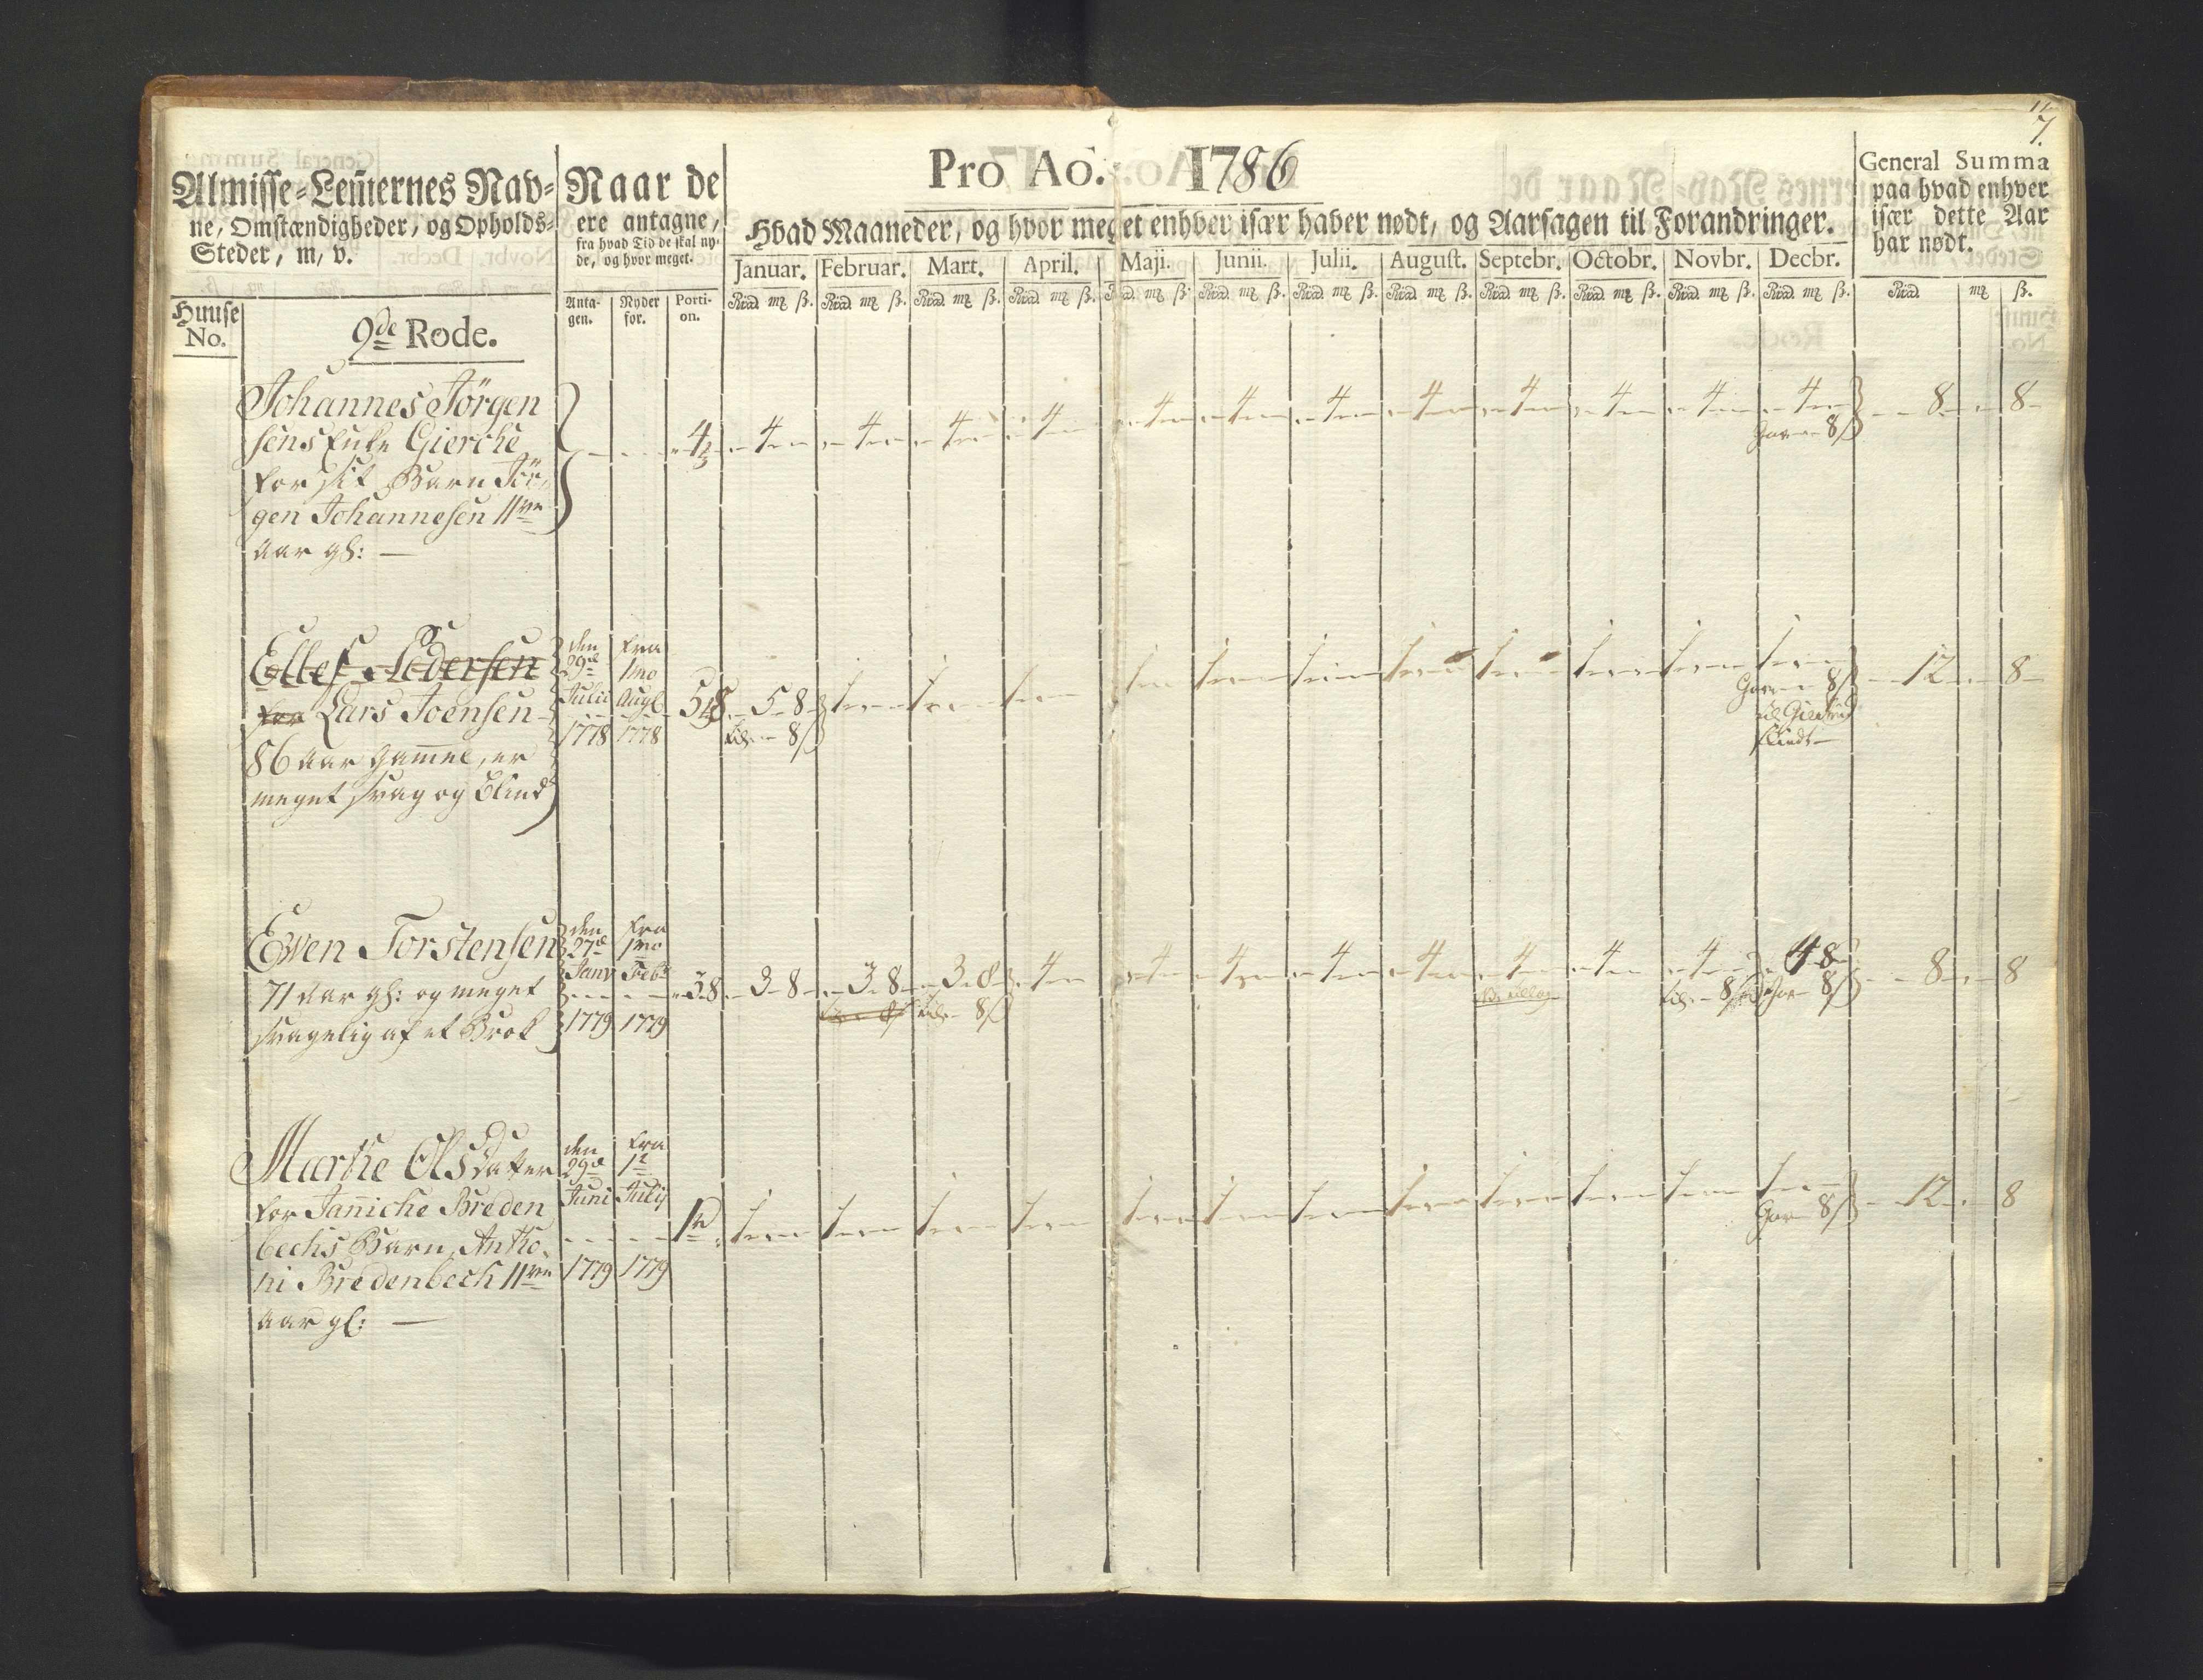 11
7.
Almisse-Lemernes Nav-
ne, Omstændigheder, og Opholds-
Steder, m, v.
Naar de
ere antagne,
fra hvad Tid de skal ny-
de, og hvor meget.
Pro Ao. 1786
Hvad Maaneder, og hvor meget enhver især haver nødt, og Aarsagen til Forandringer.
General Summa
paa hvad enhver
især dette Aar
har nødt.
Januar. Februar. Mart. April. Maji. Junii. Julii. August. Septebr. Octobr. Novbr. Decbr.
Huuse
No.
9de Rode.
Anta-
gen.
Nyder
for.
Porti-
on.
Rd mk ß. Rd mk ß. Rd mk ß. Rd mk ß. Rd mk ß. Rd mk ß. Rd mk ß. Rd mk ß. Rd mk ß. Rd mk ß. Rd mk ß. Rd mk ß. Rd mk ß.
Johannes Jörgen
sens Enke Gierche
for sit Barn Jör,
gen Johannesen 11ve
aar gl: —
4 4 4 4 4 4 4 4 4 4 4 4 4 8 8
8ß
Ellef Pedersen
for Lars Joensen
86 aar gammel, er
meget svag og blind
den
29de
Julii
1778
fra
1mo
Augt
1778
5 8 5-8 1 1 1 1 1 1 1 1 1 1 1 12 8
8ß
8ß
Even Torstensen
71 aar gl: og meget
svagelig af et Brok
den
27de
Janv
1779
fra
1mo
Febr
1779
3-8 3-8 3-8 3-8 4 4 4 4 4 4 4 4 4-8 8 8
8ß
8ß
8ß
Marthe Olsdatter
for Janniche Breden
bechs Barn Antho,
ni Bredenbech 11ve
aar gl: —
den
29de
Juni
1779
fra
1t
Julij
1779
1 1 1 1 1 1 1 1 1 1 1 1 1 12 8
8ß